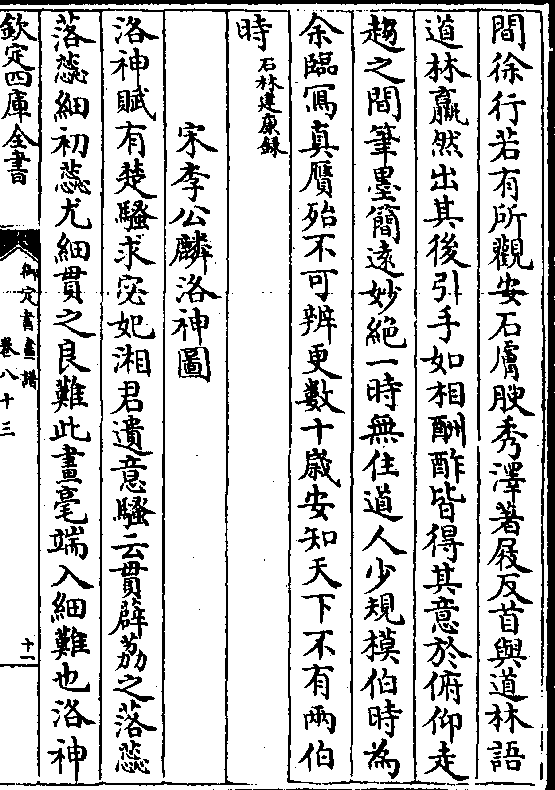 間徐行若有所觀安石膚腴秀澤著屐反首與道林語
道林羸然出其後引手如相酬酢皆得其意於俯仰走
趨之間筆墨簡遠妙絶一時無住道人少規模伯時為
余臨寫真贋殆不可辨更數十歳安知天下不有兩伯
時石林建康録
宋李公麟洛神圖
洛神賦有楚騷求宓妃湘君遺意騷云貫薜荔之落蕊
落蕊細初蕊尤細貫之良難此畫毫端入細難也洛神
欽定四庫全書
御定書畫譜
卷八十三
十一